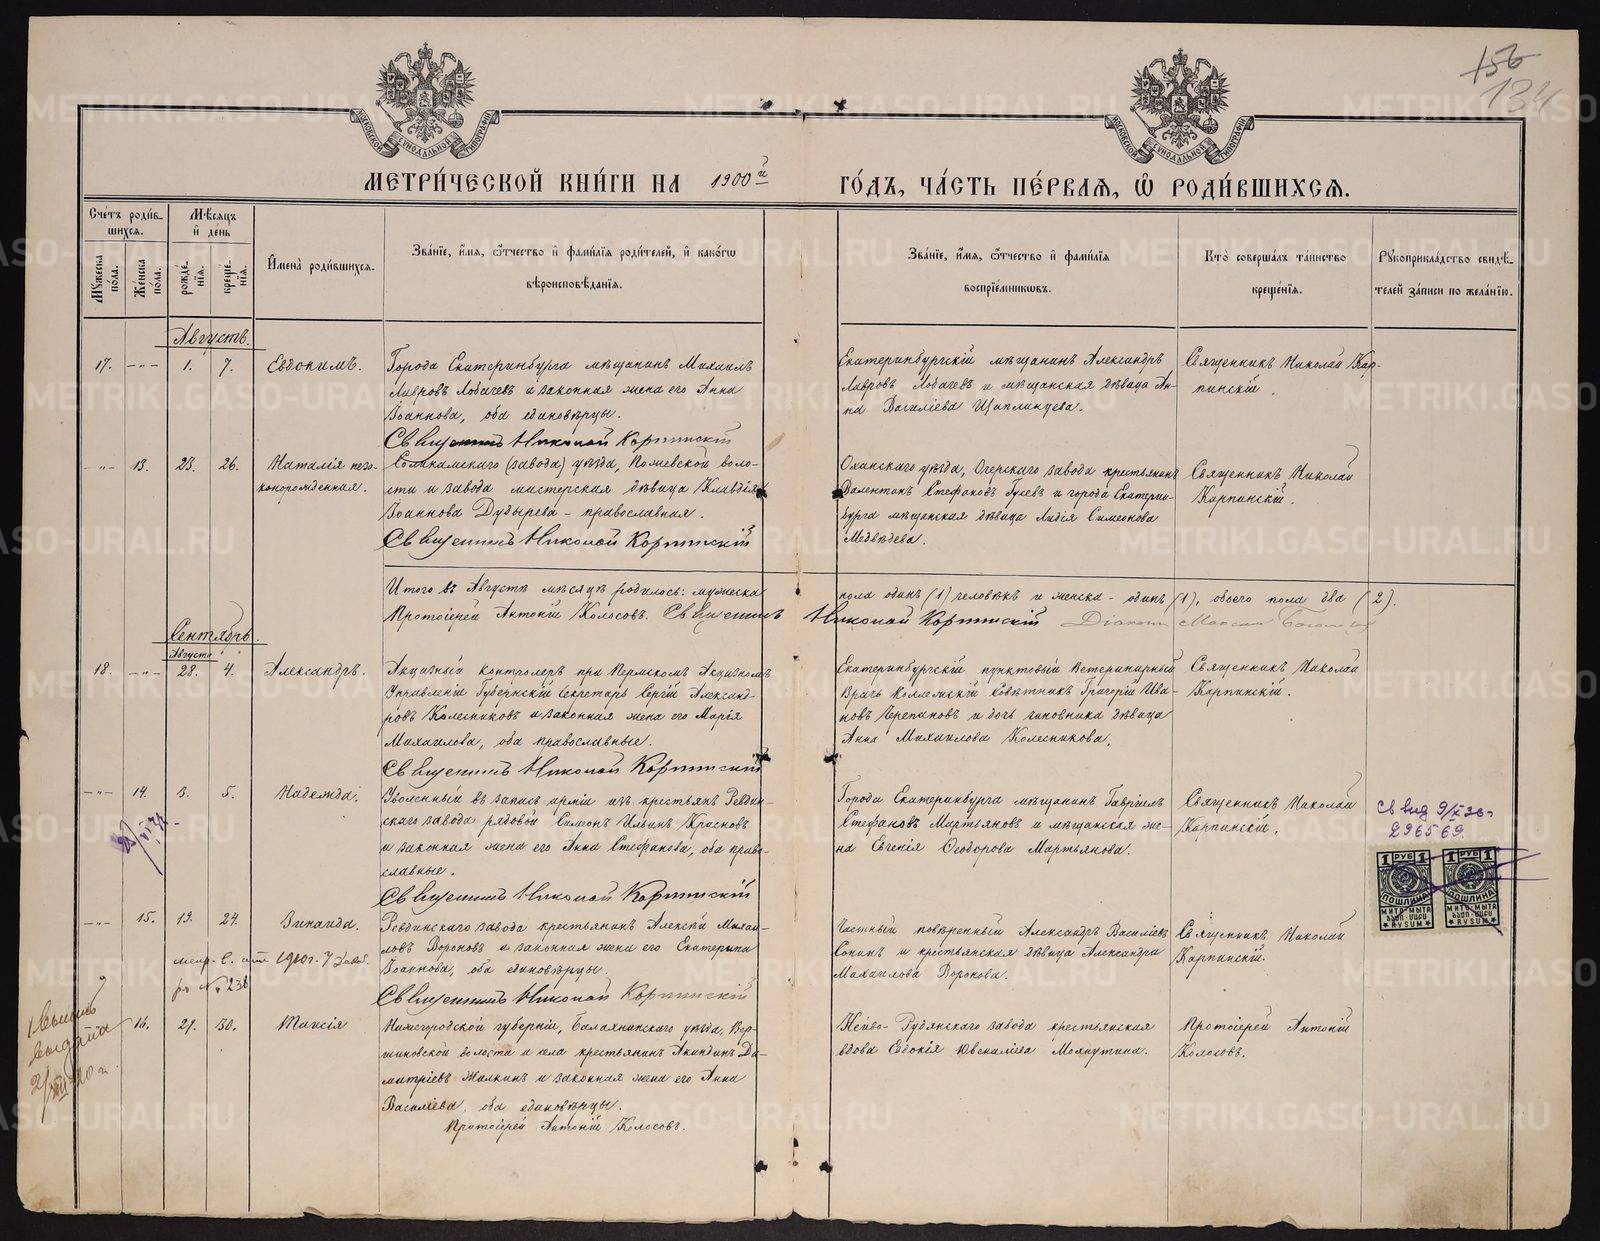 156
134
МЕТРИ́ЧЕСКОЙ КНИ́ГИ НА 1900й ГО́ДЪ, ЧА́СТЬ ПЕ́РВАЯ, Ѡ РОДИ́ВШИХСЯ.
Сче́тъ роди́в-
шихся.
Му́жеска по́ла.
Же́нска по́ла.
Мѣ́сяцъ
и҆ де́нь
рожде́-
нїя.
креще́-
нїя.
И҆мена̀ роди́вшихся.
Зва́нїе, и҆́мя, ѻ҆́тчество и҆ фами́лїя роди́телей, и҆ како́гѡ
вѣроисповѣ́данїя.
Зва́нїе, и҆́мя, ѻ҆́тчество и҆ фами́лїя
воспрїе́мниковъ.
Кто̀ соверша́лъ та́инство
креще́нїя.
Рꙋкоприкла́дство свидѣ́-
телей за́писи по жела́нїю.
Августъ.
17. -"- 1. 7. Евдокимъ.
Города Екатеринбурга мѣщанинъ Михаилъ
Лавровъ Лобачев и законная жена его Анна
Іоаннова, оба единовѣрцы.
Священникъ Николай Карпинскій
Екатеринбургскій мѣщанинъ Александръ
Лавровъ Лобачевъ и мѣщанская дѣвица Ан-
на Василіева Щиплинцева.
Священникъ Николай Кар-
пинскій.
-"- 13. 23. 26. Наталія неза-
коннорожденная.
Соликамскаго (завода) уѣзда, Пожевской воло-
сти и завода мастерская дѣвица Клавдія
Іоаннова Дубырева - православная.
Священникъ Николай Карпинскій
Оханскаго уѣзда, Очерскаго завода крестьянинъ
Валентинъ Стефановъ Гусевъ и города Екатерин-
бурга мѣщанская дѣвица Лидія Симеонова
Медвѣдева.
Священникъ Николай
Карпинскій.
Итого въ Августѣ мѣсяцѣ родилось: мужеска
пола одинъ (1) человѣкъ и женска - одинъ (1), обоего пола два (2).
Протоіерей Антоній Колосовъ. Священникъ Николай Карпинскій Діаконъ
Сентябрь.
Августа
18. -"- 28. 4. Александръ.
Акцизный контролеръ при Пермскомъ Акцизномъ
Управленіи Губернскій Секретарь Сергій Александ-
ровъ Колесниковъ и законная жена его Марія
Михаилова, оба православные.
Священникъ Николай Карпинскій
Екатеринбургскій пунктовый Ветеринарный
Врачъ Коллежскій Совѣтникъ Григорій Ива-
новъ Черепановъ и дочь чиновника дѣвица
Анна Михаилова Колесникова.
Священникъ Николай
Карпинскій.
-"- 14. 3. 5. Надежда.
Уволенный въ запасъ арміи изъ крестьянъ Ревдин-
скаго завода рядовой Симеонъ Ильинъ Красновъ
и законная жена его Анна Стефанова, оба право-
славные.
Священникъ Николай Карпинскій
Города Екатеринбурга мѣщанинъ Гавріилъ
Стефановъ Мартьяновъ и мѣщанская же-
на Евгенія Ѳеодорова Мартьянова.
Священникъ Николай
Карпинскій.
296569
1 РУБ 1
ПОШЛИНА
1 РУБ 1
ПОШЛИНА
-"- 15. 19. 24. Зинаида.
Ревдинскаго завода крестьянинъ Алексій Михаи-
ловъ Вороновъ и законная жена его Екатерина
Іоаннова, оба единовѣрцы.
Священникъ Николай Карпинскій
Частный повѣренный Александръ Василіевъ
Сонинъ и крестьянская дѣвица Александра
Михаилова Воронова.
Священникъ Николай
Карпинскій.
1910г. 7 Декаб.
№ 236
16. 29. 30. Таисія
Нижегородской губерніи, Балахнинскаго уѣзда, Вер-
шиловской волости и села крестьянинъ Акиндинъ Ди-
митріевъ Малкинъ и законная жена его Анна
Василіева, оба единовѣрцы.
Протоіерей Антоній Колосовъ.
Нейво-Рудянскаго завода крестьянская
вдова Евдокія Ювеналіева Мокрутина.
Протоіерей Антоній
Колосовъ.
выдана
METRIKI.GASO-URAL.RU